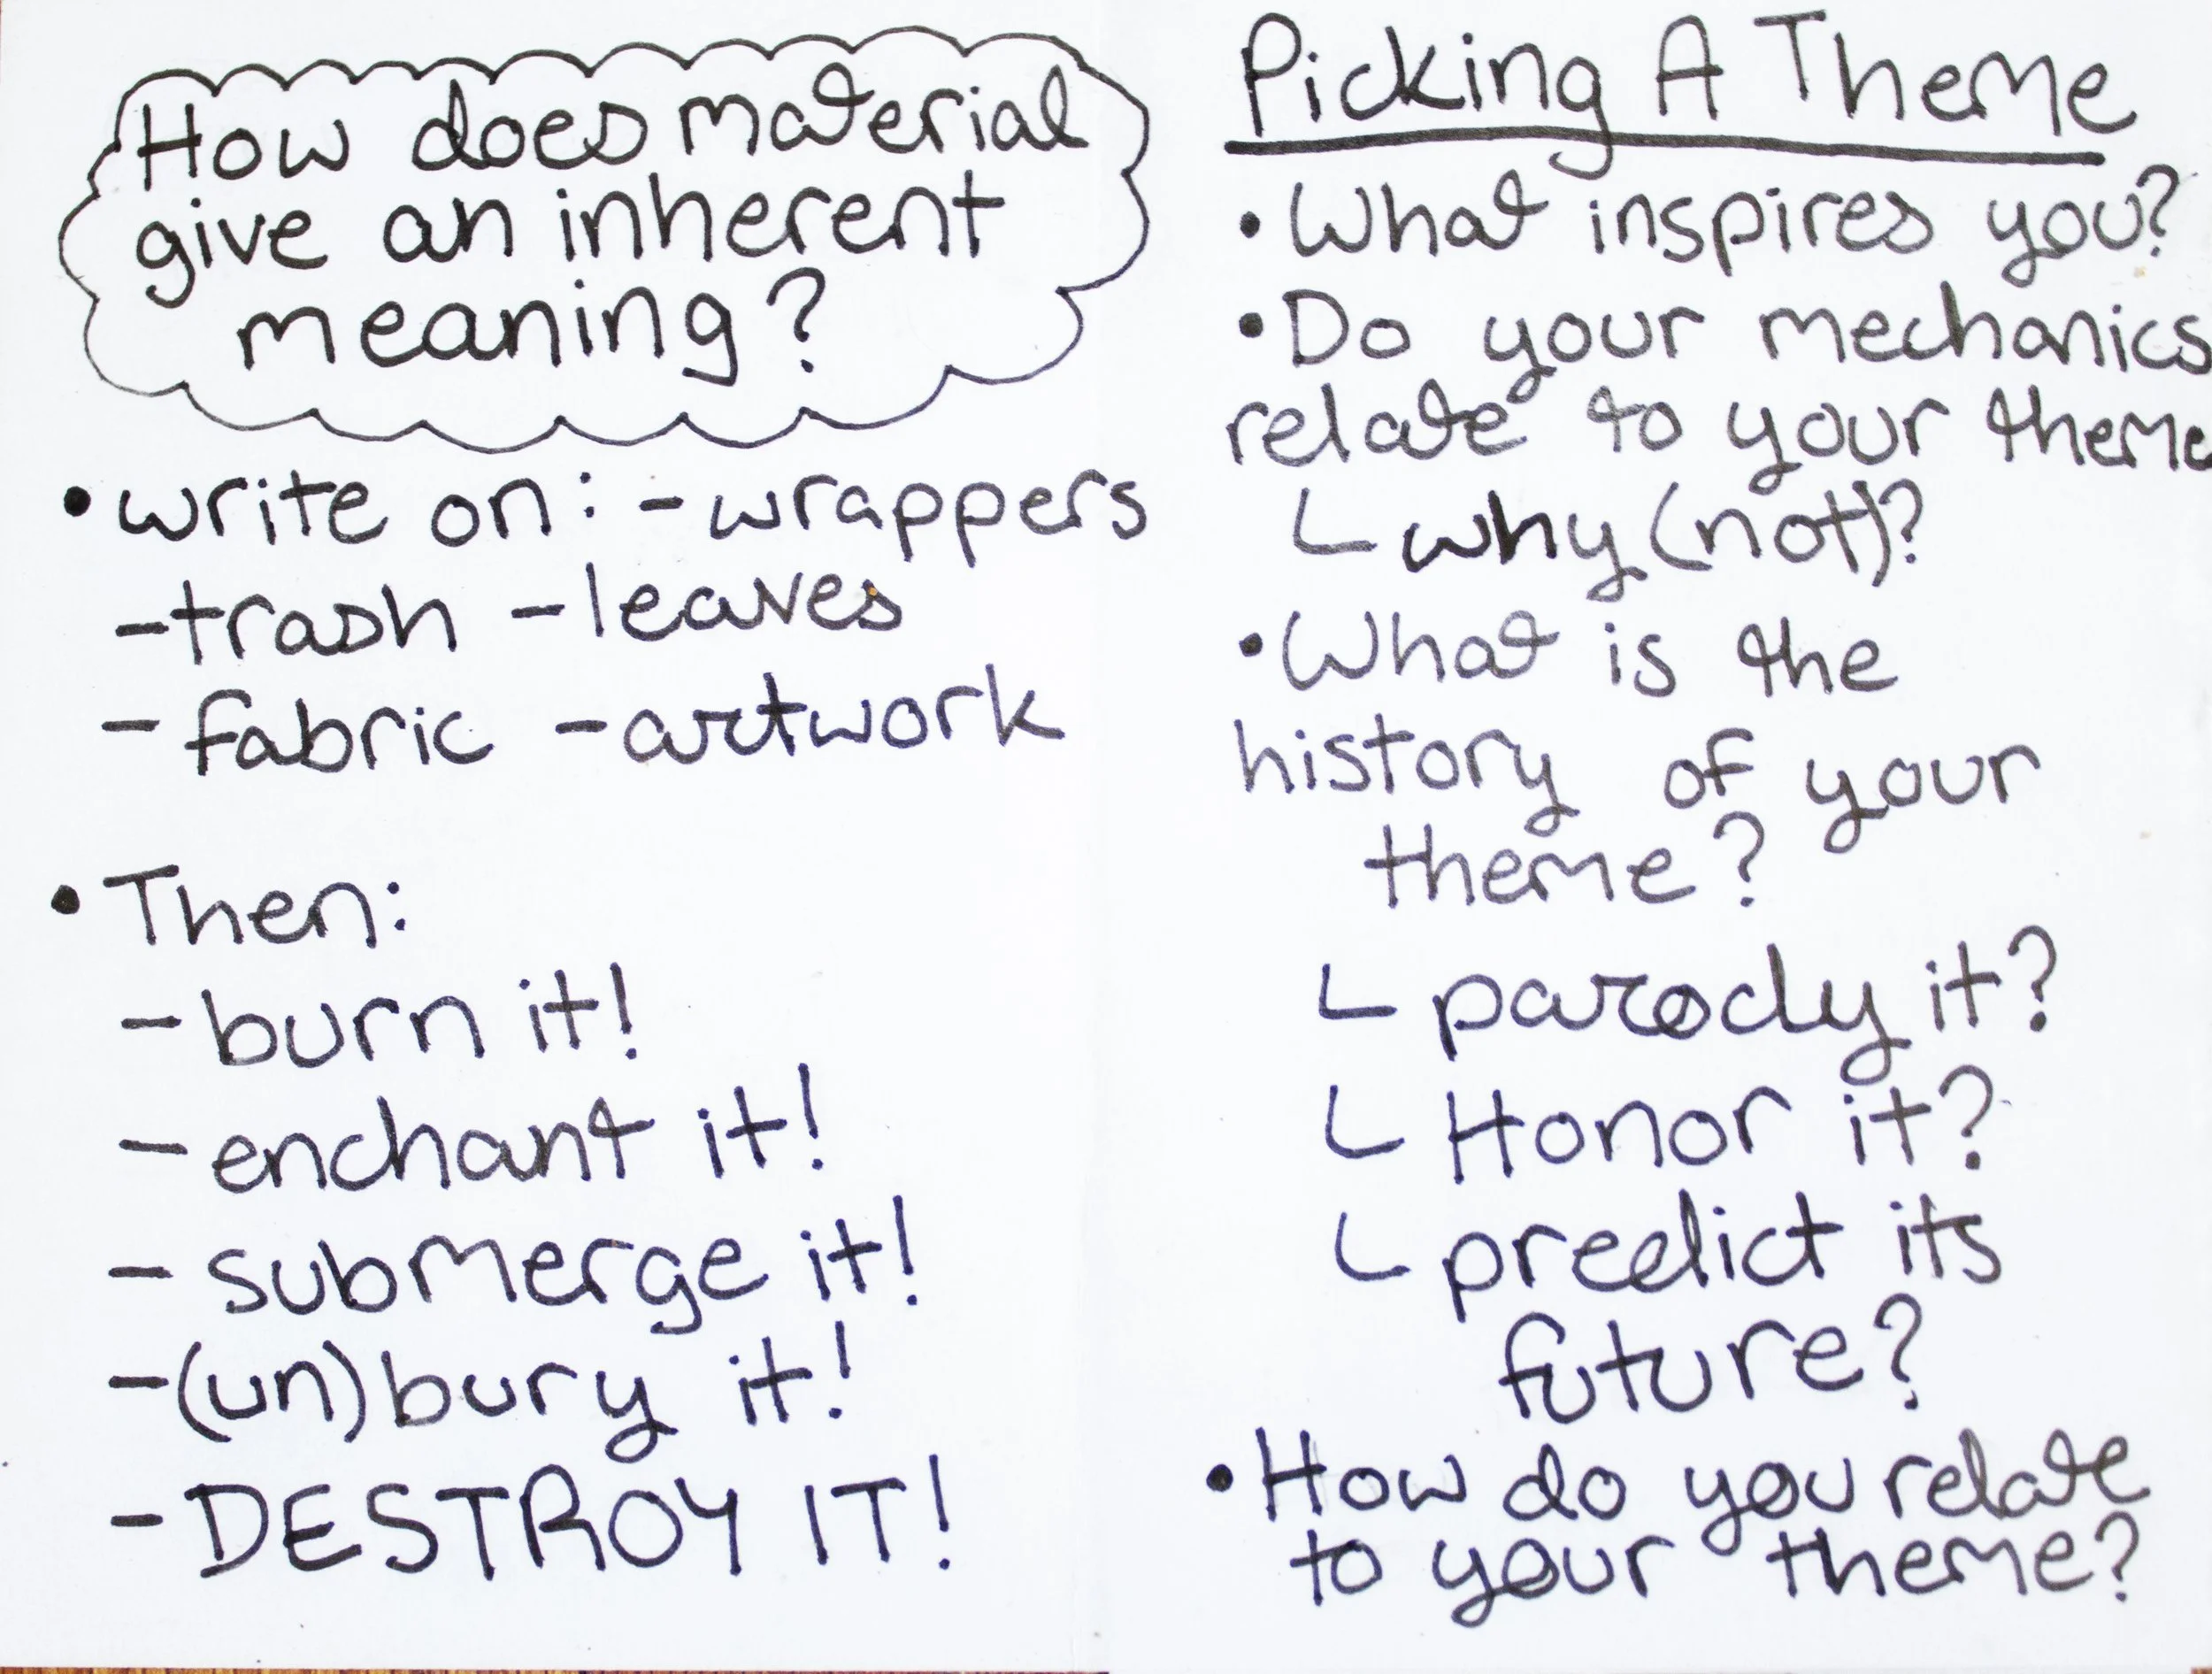 How does material
give an inherent
meaning?
• write on: - wrappers
- trash - leaves
- fabric - artwork
• Then:
- burn it!
- enchant it!
- submerge it!
- (un)bury it!
- DESTROY IT!
Picking A Theme
• What inspires you?
• Do your mechanics
relate to your theme
└ why (not)?
• What is the
history of your
theme?
└ parody it?
└ Honor it?
└ predict its
future?
• How do you relate
to your theme?